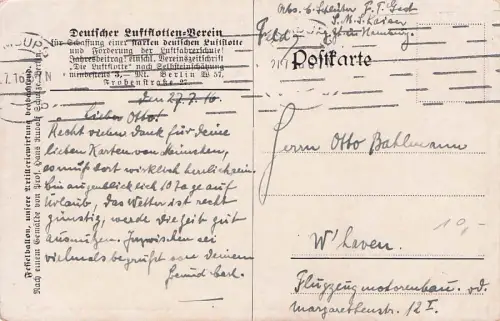 Deutscher Luftflotten-Verein
für Schaffung einer starken deutschen Luftflotte
und Förderung der Luftfahrerschule!
Jahresbeitrag: einschl. Vereinszeitschrift
"Die Luftflotte" nach Selbsteinschätzung
mindestens 3,— Mk. Berlin W 57,
Fesselballon, unsere Artilleriewirkung beobachtend.
Nach einem Gemälde von Prof. Hans Rudolf Schulze, Berlin.
den 27.7.16.
Lieber Otto!
Recht vielen Dank für deine
lieben Karten von München,
es muß dort wirklich herrlich sein.
Bin augenblicklich 10 Tage auf
Urlaub, das Wetter ist recht
günstig, werde die Zeit gut
ausnutzen. Inzwischen sei
vielmals begrüßt von deinem
Freund Carl.
Abs.
S.M.S.
Postkarte
Herrn Otto Bahlmann
10,-
W'haven.
Flugzeugmotorenbau. od.
Margarethenstr. 12 I.